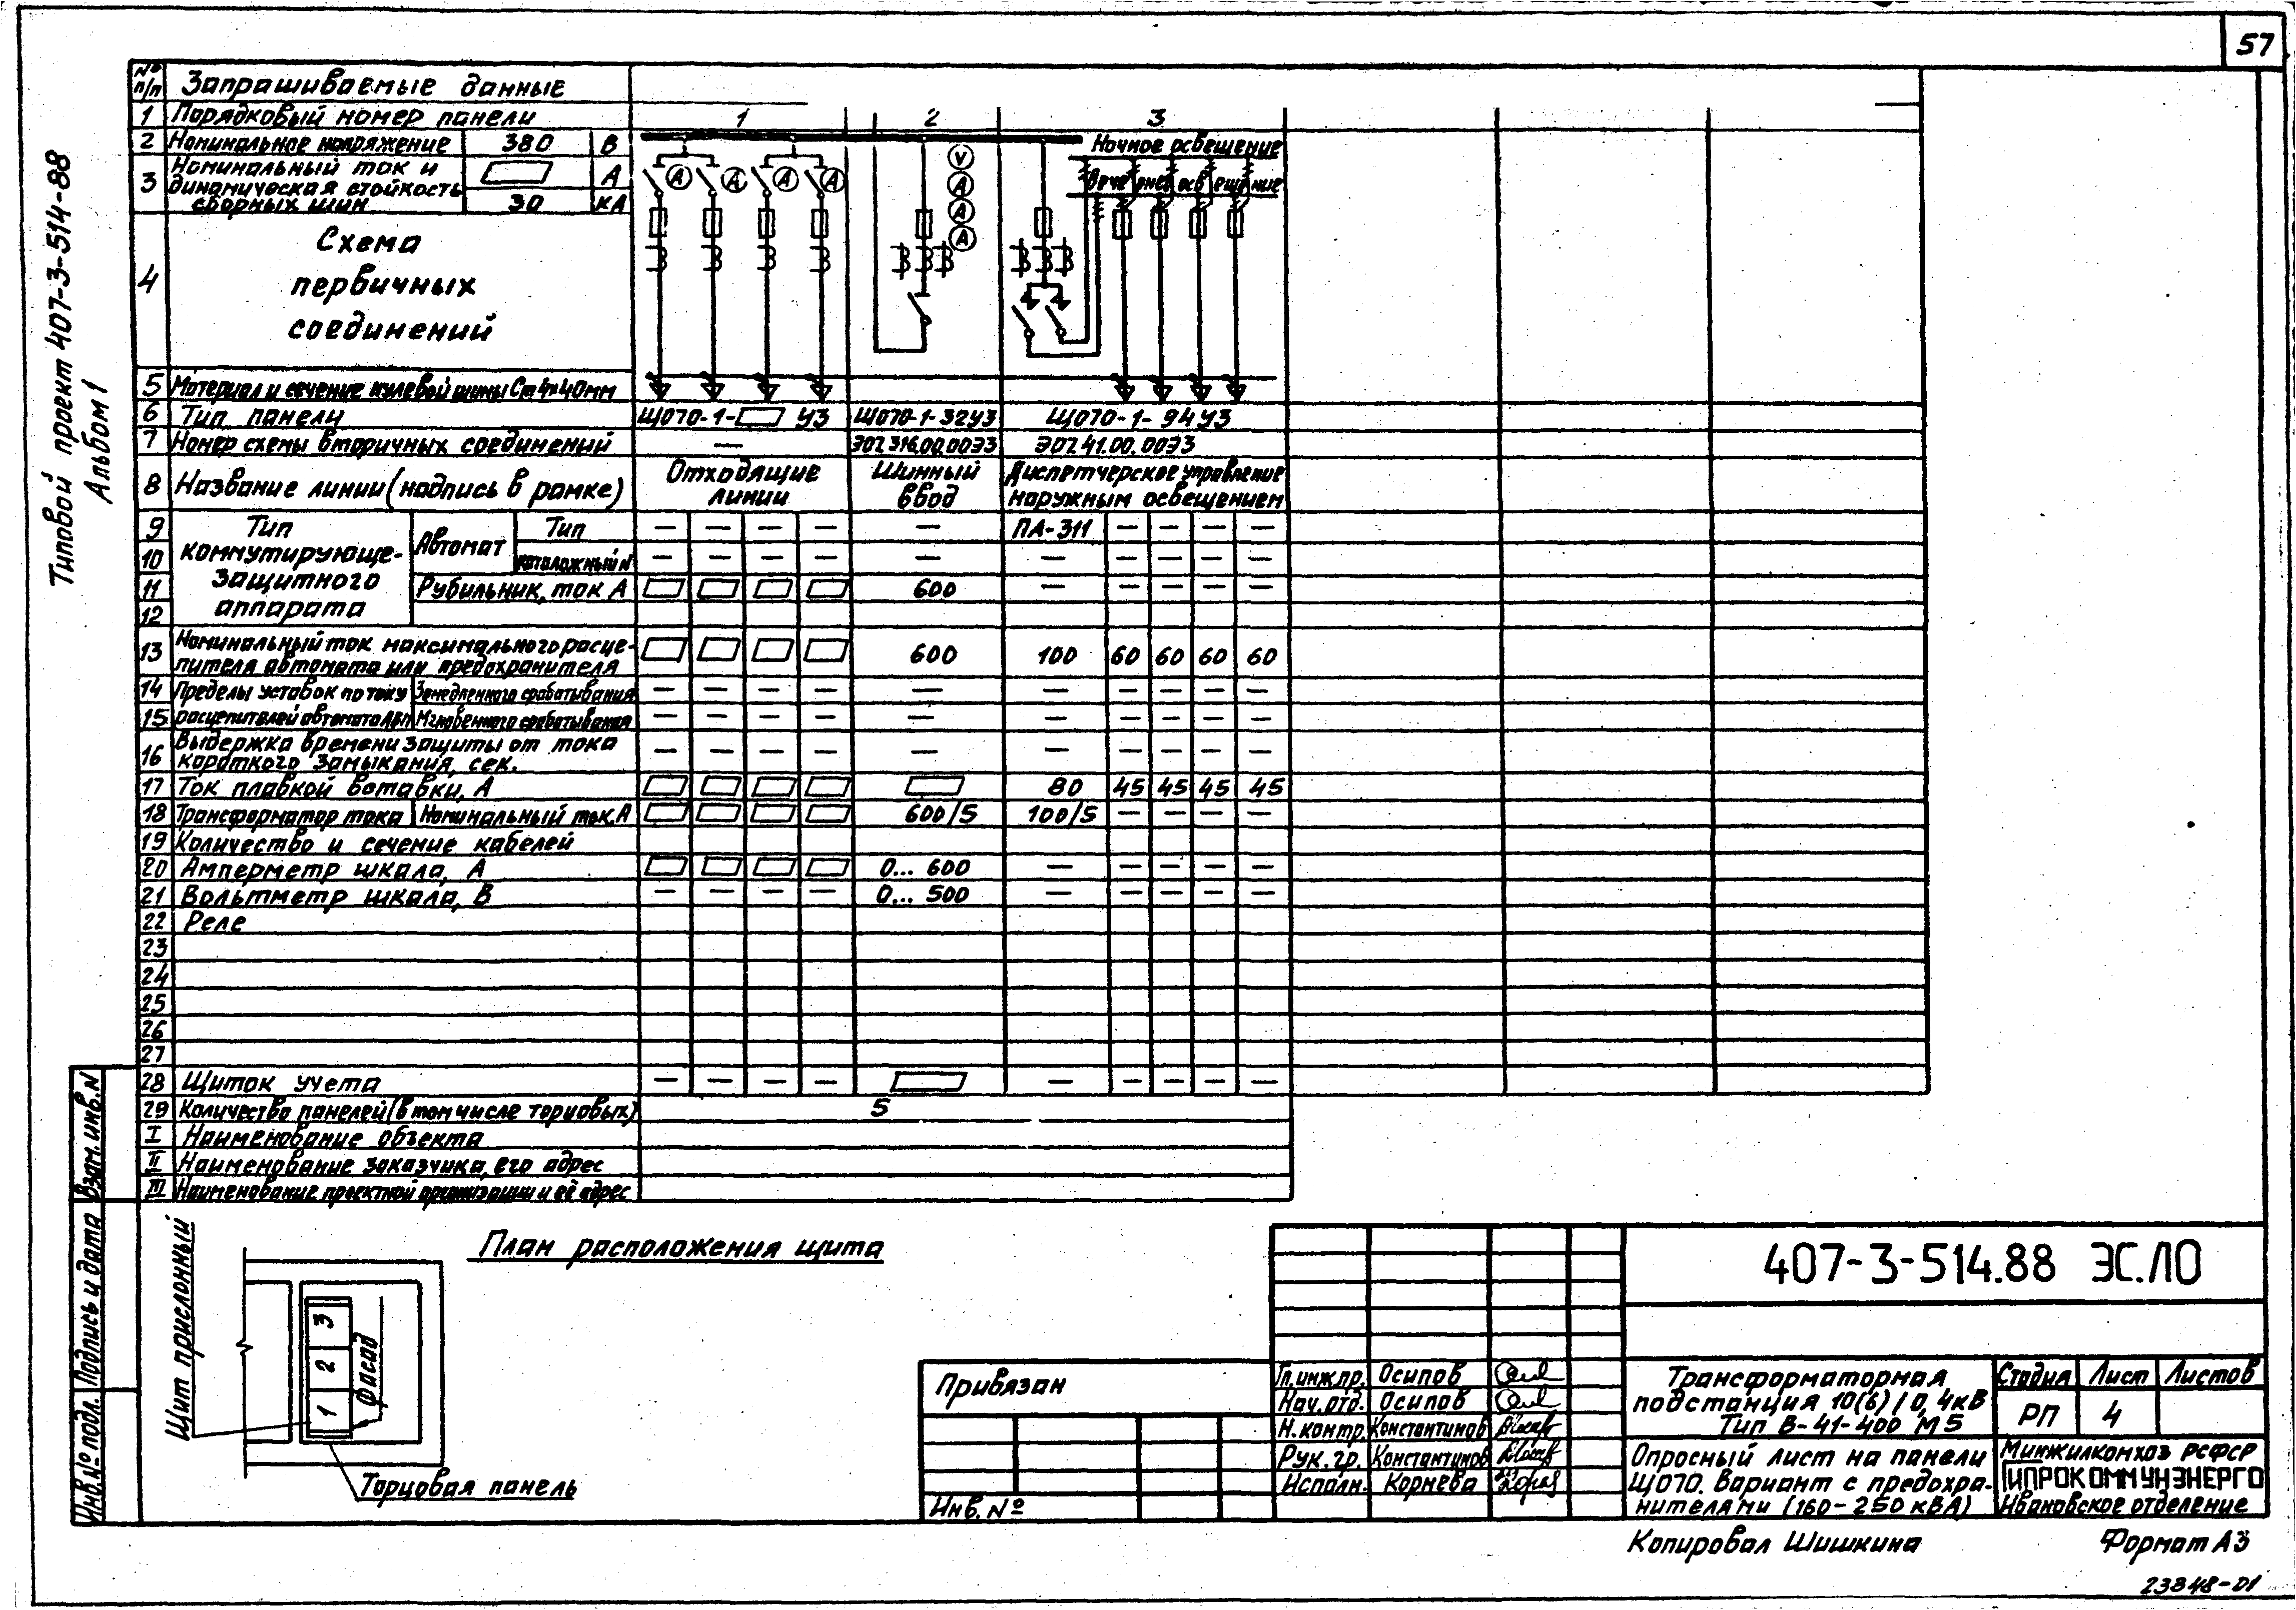 57
Типовой проект 407-3-514-88
Альбом 1
№ п/п Запрашиваемые данные
1 Порядковый номер панели 1 2 3
2 Номинальное напряжение 380 В
3 Номинальный ток и А
динамическая стойкость
сборных шин 30 кА
Ночное освещение
Вечернее освещение
V
А А А А А
А
А
4 Схема
первичных
соединений
5 Материал и сечение нулевой шины Ст 4х40мм
6 Тип панели ЩО70-1- У3 ЩО70-1-32У3 ЩО70-1-94У3
7 Номер схемы вторичных соединений — ЭО7.316.00.00Э3 ЭО7.41.00.00Э3
8 Название линии (надпись в рамке) Отходящие линии Шинный ввод Диспетчерское управление наружным освещением
9 Тип Автомат Тип — — — — — ПА-311 — — — —
10 коммутирующе- каталожный N — — — — — — — — — —
11 защитного Рубильник, ток А 600 — — — — —
12 аппарата
13 Номинальный ток максимального расце-
пителя автомата или предохранителя 600 100 60 60 60 60
14 Пределы уставок по току Замедленного срабатывания — — — — — — — — — —
15 расцепителей автомата Мгновенного срабатывания — — — — — — — — — —
16 Выдержка времени защиты от тока
короткого замыкания, сек. — — — — — — — — — —
17 Ток плавкой вставки, А 80 45 45 45 45
18 Трансформатор тока Номинальный ток. А 600/5 100/5 — — — —
19 Количество и сечение кабелей
20 Амперметр шкала, А 0... 600 — — — — —
21 Вольтметр шкала, В — — — — 0... 500 — — — — —
22 Реле
23
24
25
26
27
28 Щиток учета — — — — — — — — —
29 Количество панелей (в том числе торцовых) 5
I Наименование объекта
II Наименование заказчика, его адрес
III Наименование проектной организации и её адрес
Взам. инв. N
Подпись и дата
Инв. № подл.
План расположения щита
Щит прислонный
3
2
1
Фасад
Торцовая панель
Привязан
Инв. №
Гл. инж. пр. Осипов
Нач. отд. Осипов
Н. контр. Константинов
Рук. гр. Константинов
Исполн. Корнева
407-3-514.88 ЭС.ЛО
Трансформаторная
подстанция 10(6)/0,4кВ
Тип В-41-400 М5
Стадия Лист Листов
РП 4
Опросный лист на панели
ЩО70. Вариант с предохра-
нителями (160-250 кВА)
Минжилкомхоз РСФСР
ГИПРОКОММУНЭНЕРГО
Ивановское отделение
Копировал Шишкина Формат А3
23848-01